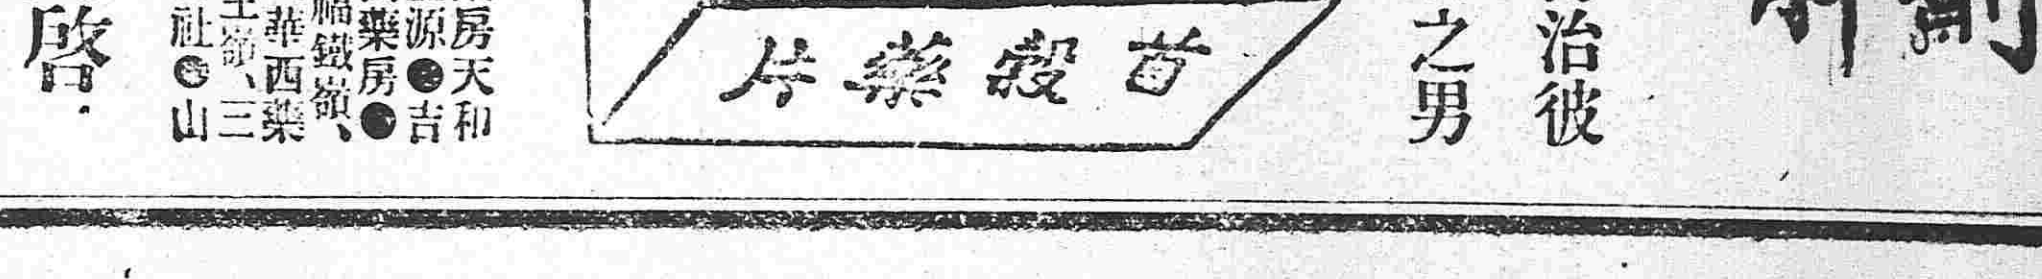 劑
治彼
之男
苜穀藥片
房天和
源●吉
藥房●
福鐵嶺、
華西藥
王嶺、三
社●山
啓